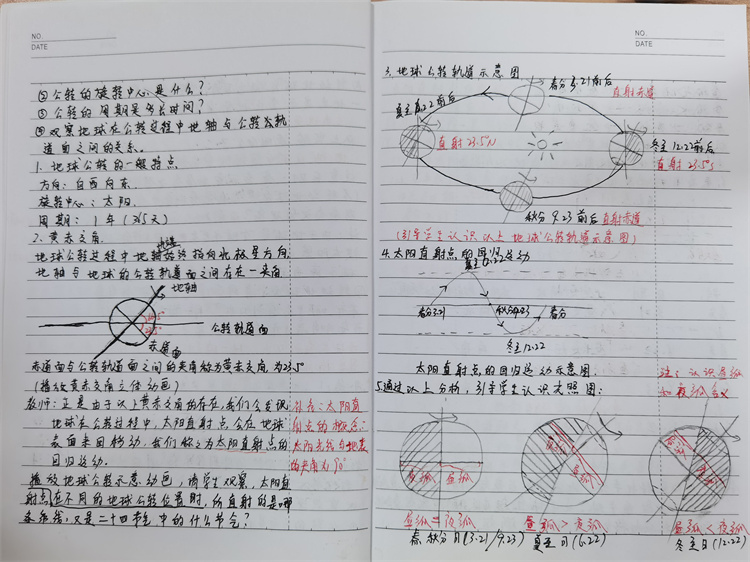 NO.
DATE
②公转的旋转中心是什么?
③公转的周期是多长时间?
④观察地球在公转过程中地轴与公转轨
道面之间的关系。
1. 地球公转的一般特点
方向: 自西向东.
旋转中心: 太阳.
周期: 1年(365天)
2. 黄赤交角.
地球公转过程中地轴始终指向北极星方向.
地轴与地球的公转轨道面之间存在一夹角
地轴
公转轨道面
赤道面
赤道面与公转轨道面之间的夹角称为黄赤交角.为23.5°
(播放黄赤交角立体动画)
教师: 正是由于以上黄赤交角的存在,我们会发现
地球在公转过程中,太阳直射点会在地球
表面来回移动.我们称之为太阳直射点的
回归运动.
补充: 太阳直
射点的概念:
太阳光线与地表
的夹角为90°
播放地球公转示意动画,请学生观察,太阳直
射点在不同的地球公转位置时,所直射的是哪
条纬线,又是二十四节气中的什么节气?
NO.
DATE
3. 地球公转轨道示意图
春分3.21前后
直射赤道
夏至6.22前后
直射23.5°N
冬至12.22前后
直射23.5°S
秋分9.23前后 直射赤道
(引导学生认识以上地球公转轨道示意图)
4. 太阳直射点的回归运动
夏至6.22
春分3.21
秋分9.23
春分
冬至12.22
太阳直射点的回归运动示意图.
注: 认识昼弧
和夜弧含义
5. 通过以上分析,引导学生认识光照图:
夜弧
昼弧
夜弧
昼弧
昼弧=夜弧
昼弧>夜弧
昼弧<夜弧
春秋分日(3.21/9.23)
夏至日(6.22)
冬至日(12.22)